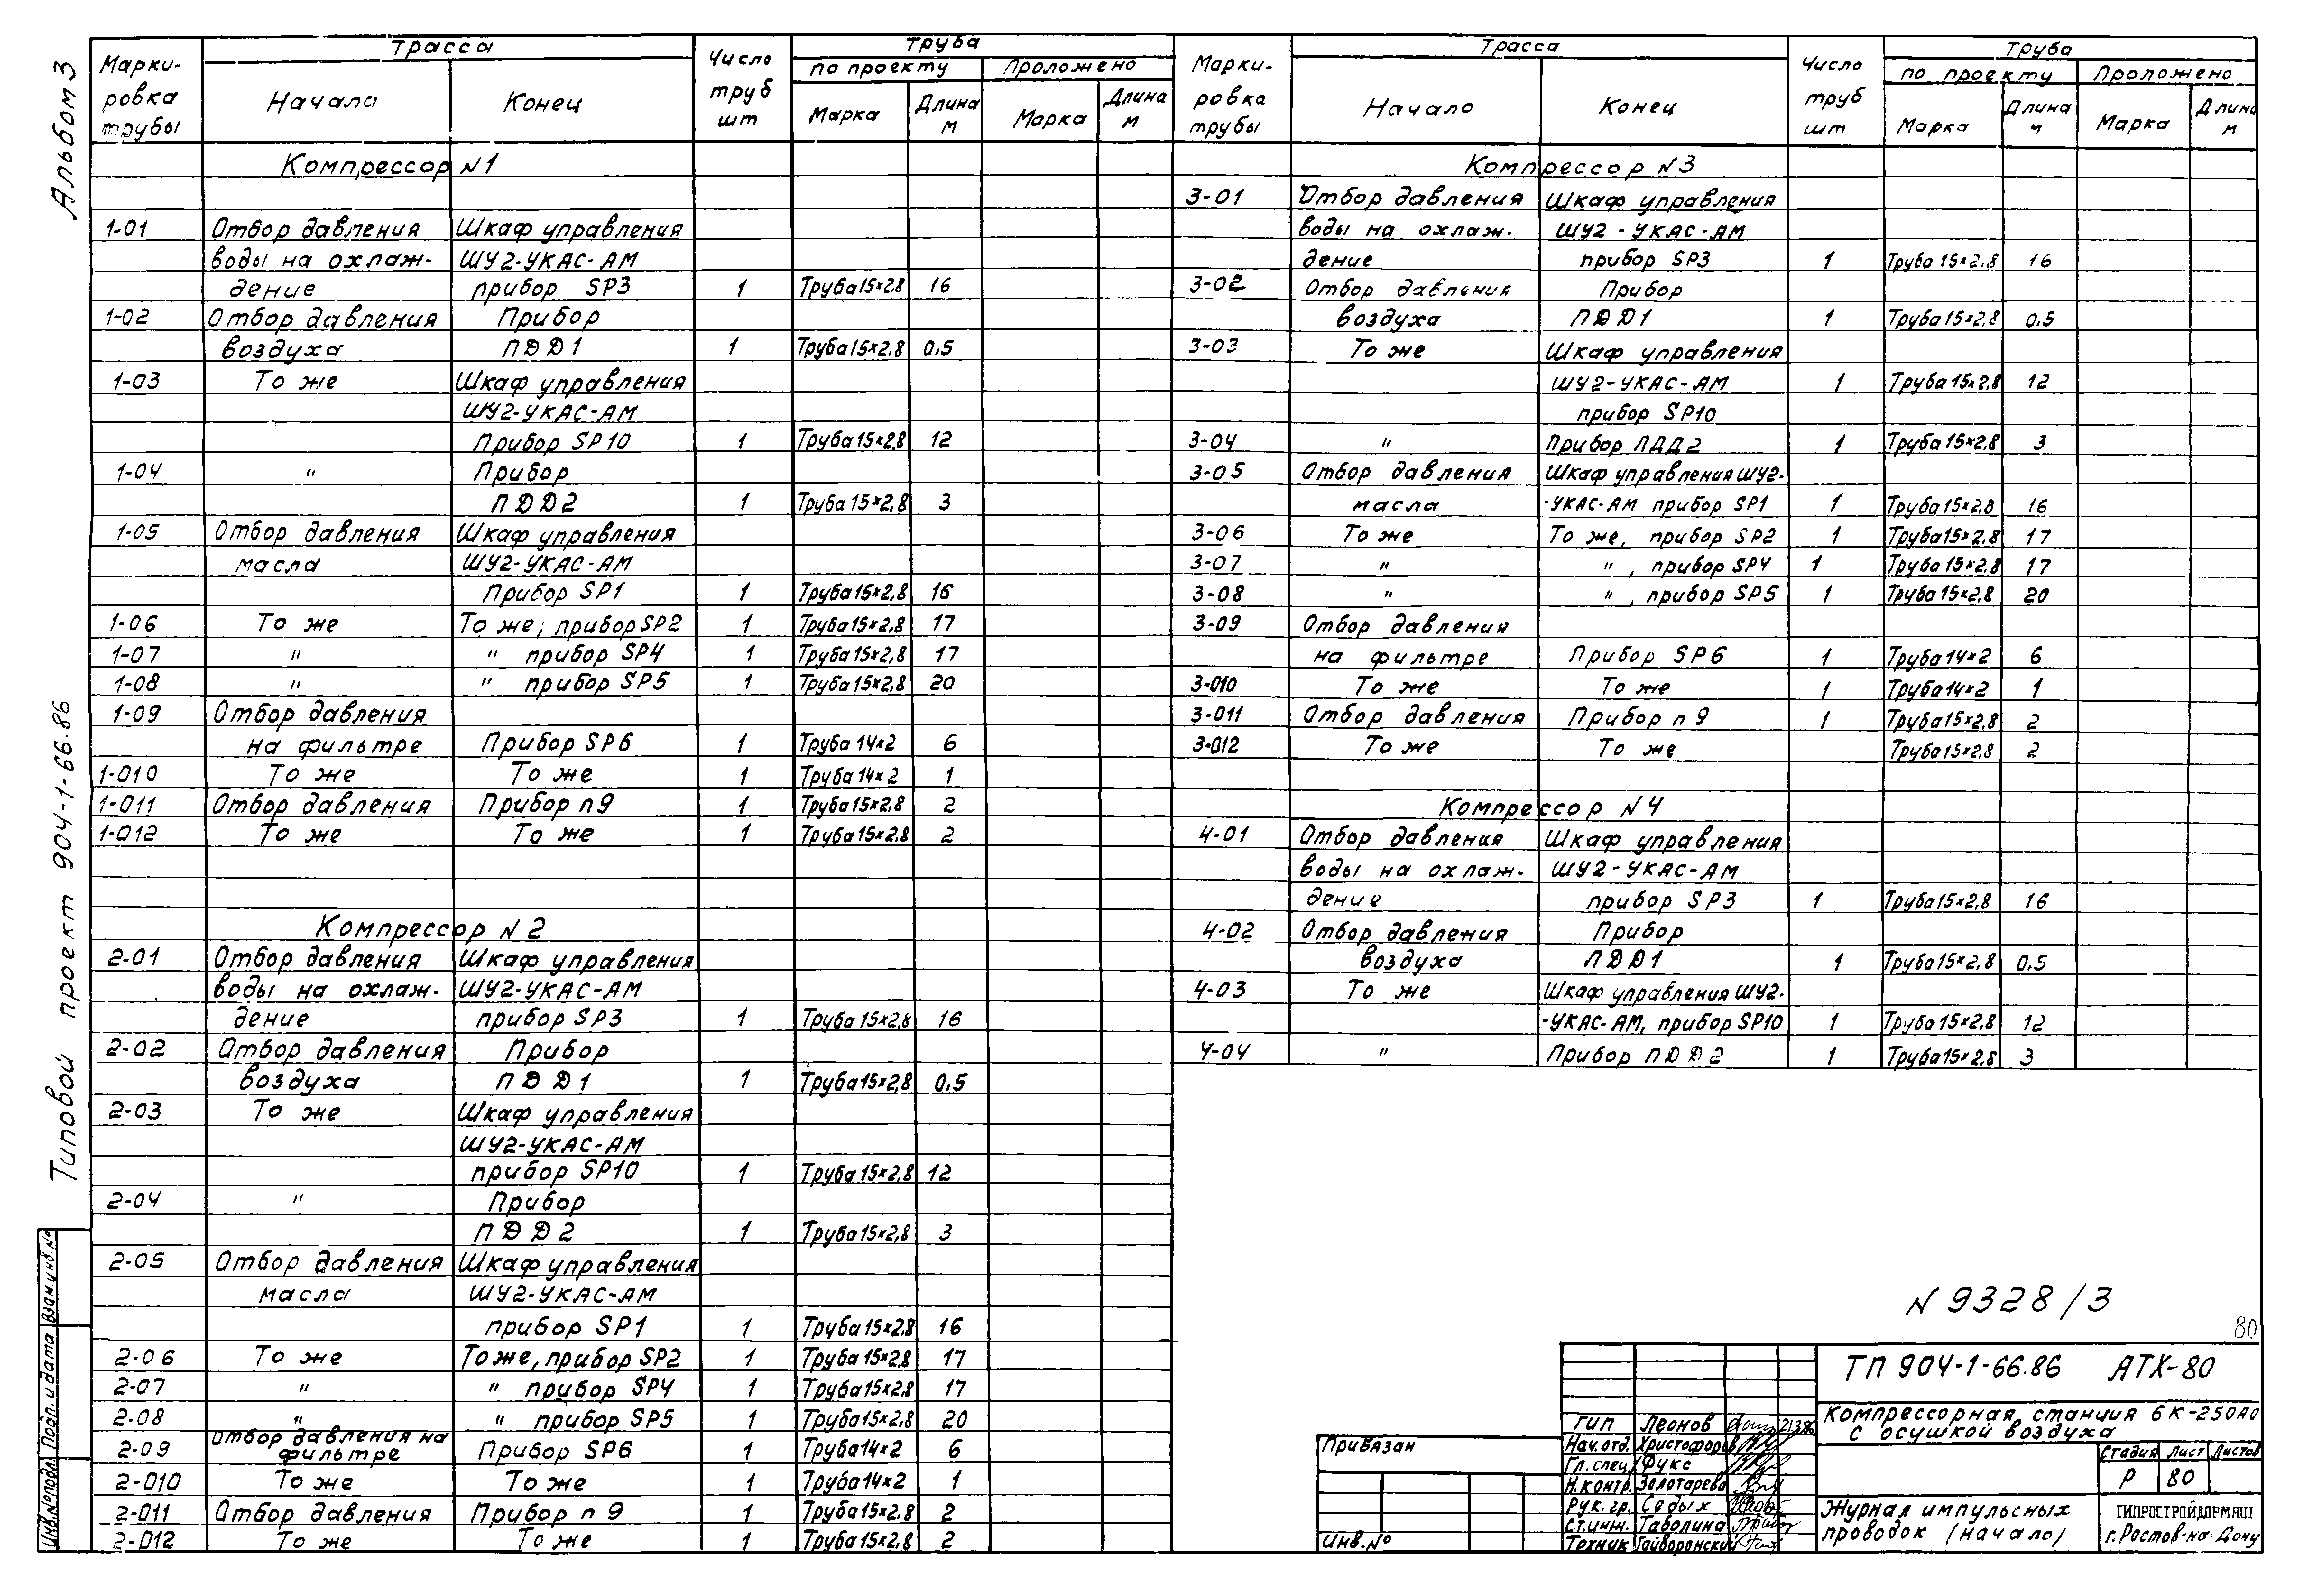 Альбом 3
Типовой проект 904-1-66.86
Инв.№подл. Подп. и дата Взам.инв.№
Марки-ровка трубы Трасса Число труб шт Труба
Начало Конец по проекту Проложено
Марка Длина м Марка Длина м
Компрессор N1
1-01 Отбор давления Шкаф управления
воды на охлаж- ШУ2-УКАС-АМ
дение прибор SP3 1 Труба 15×2.8 16
1-02 Отбор давления Прибор
воздуха ПДД1 1 Труба 15×2,8 0.5
1-03 То же Шкаф управления
ШУ2-УКАС-АМ
Прибор SP10 1 Труба 15×2,8 12
1-04 " Прибор
ПДД2 1 Труба 15×2,8 3
1-05 Отбор давления Шкаф управления
масла ШУ2-УКАС-АМ
Прибор SP1 1 Труба 15×2,8 16
1-06 То же То же; прибор SP2 1 Труба 15×2,8 17
1-07 " " прибор SP4 1 Труба 15×2,8 17
1-08 " " прибор SP5 1 Труба 15×2,8 20
1-09 Отбор давления
на фильтре Прибор SP6 1 Труба 14×2 6
1-010 То же То же 1 Труба 14×2 1
1-011 Отбор давления Прибор п9 1 Труба 15×2,8 2
1-012 То же То же 1 Труба 15×2.8 2
Компрессор N2
2-01 Отбор давления Шкаф управления
воды на охлаж- ШУ2-УКАС-АМ
дение прибор SP3 1 Труба 15×2,8 16
2-02 Отбор давления Прибор
воздуха ПДД1 1 Труба 15×2,8 0.5
2-03 То же Шкаф управления
ШУ2-УКАС-АМ
прибор SP10 1 Труба 15×2,8 12
2-04 " Прибор
ПДД2 1 Труба 15×2,8 3
2-05 Отбор давления Шкаф управления
масла ШУ2-УКАС-АМ
прибор SP1 1 Труба 15×2,8 16
2-06 То же То же, прибор SP2 1 Труба 15×2.8 17
2-07 " " прибор SP4 1 Труба 15×2,8 17
2-08 " " прибор SP5 1 Труба 15×2,8 20
2-09 Отбор давления на фильтре Прибор SP6 1 Труба 14×2 6
2-010 То же То же 1 Труба 14×2 1
2-011 Отбор давления Прибор п9 1 Труба 15×2.8 2
2-012 То же То же 1 Труба 15×2,8 2
Марки-ровка трубы Трасса Число труб шт Труба
Начало Конец по проекту Проложено
Марка Длина м Марка Длина м
Компрессор N3
3-01 Отбор давления Шкаф управления
воды на охлаж- ШУ2-УКАС-АМ
дение прибор SP3 1 Труба 15×2,8 16
3-02 Отбор давления Прибор
воздуха ПДД1 1 Труба 15×2,8 0.5
3-03 То же Шкаф управления
ШУ2-УКАС-АМ 1 Труба 15×2,8 12
прибор SP10
3-04 " Прибор ПДД2 1 Труба 15×2,8 3
3-05 Отбор давления Шкаф управления ШУ2-
масла -УКАС-АМ прибор SP1 1 Труба 15×2,8 16
3-06 То же То же, прибор SP2 1 Труба 15×2,8 17
3-07 " ", прибор SP4 1 Труба 15×2,8 17
3-08 " ", прибор SP5 1 Труба 15×2,8 20
3-09 Отбор давления
на фильтре Прибор SP6 1 Труба 14×2 6
3-010 То же То же 1 Труба 14×2 1
3-011 Отбор давления Прибор п9 1 Труба 15×2,8 2
3-012 То же То же Труба 15×2,8 2
Компрессор N4
4-01 Отбор давления Шкаф управления
воды на охлаж- ШУ2-УКАС-АМ
дение прибор SP3 1 Труба 15×2,8 16
4-02 Отбор давления Прибор
воздуха ПДД1 1 Труба 15×2,8 0.5
4-03 То же Шкаф управления ШУ2-
-УКАС-АМ, прибор SP10 1 Труба 15×2,8 12
4-04 " Прибор ПДД2 1 Труба 15×2,8 3
N 9328/3
80
ТП 904-1-66.86 АТХ-80
Компрессорная станция 6К-250АО
с осушкой воздуха
Стадия Лист Листов
Р 80
Журнал импульсных
проводок (начало)
ГИПРОСТРОЙДОРМАШ
г. Ростов-на-Дону
ГИП Леонов 21.3.86
Нач.отд. Христофоров
Гл.спец. Фукс
Н.контр. Золотарева
Рук.гр. Седых
Ст.инж. Таволина
Техник Гайворонский
Привязан
Инв.№